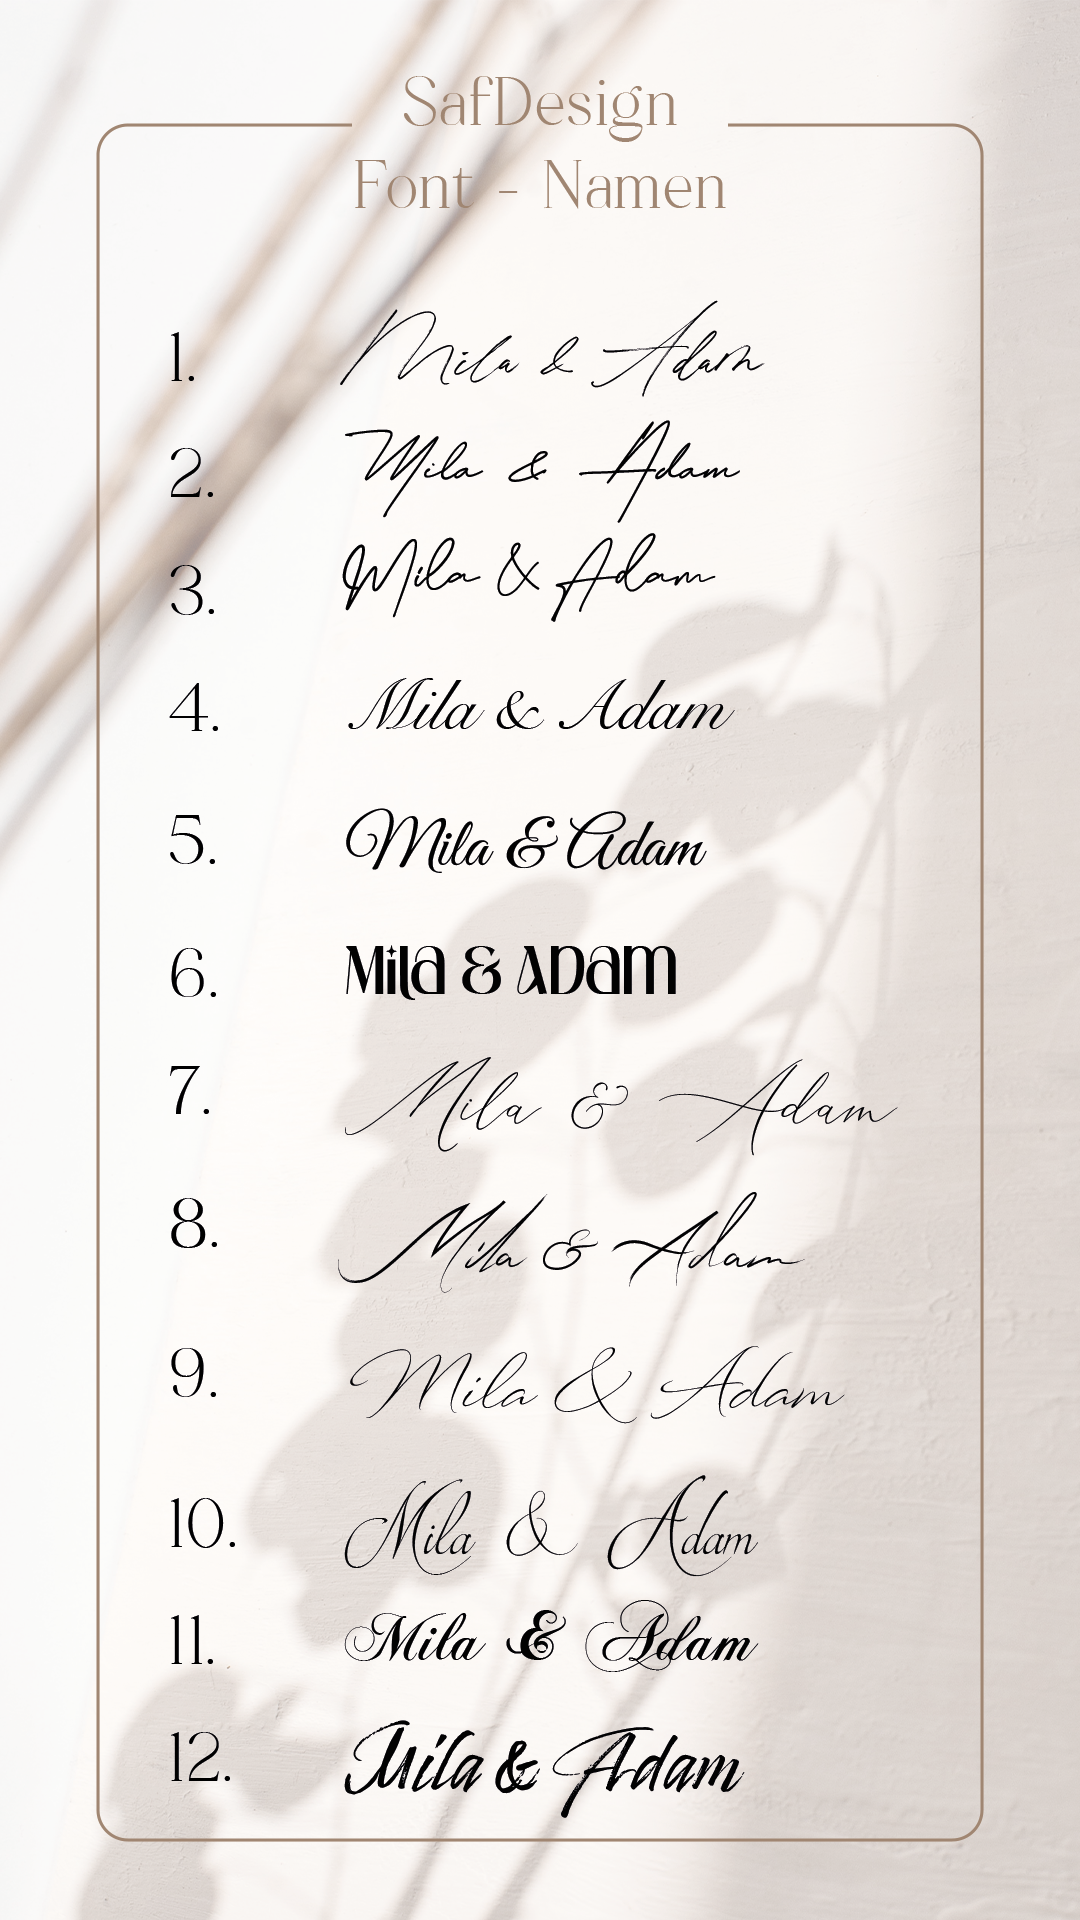 SafDesign
Font - Namen
1. Mila & Adam
2. Mila & Adam
3. Mila & Adam
4. Mila & Adam
5. Mila & Adam
6. Mila & ADAM
7. Mila & Adam
8. Mila & Adam
9. Mila & Adam
10. Mila & Adam
11. Mila & Adam
12. Mila & Adam